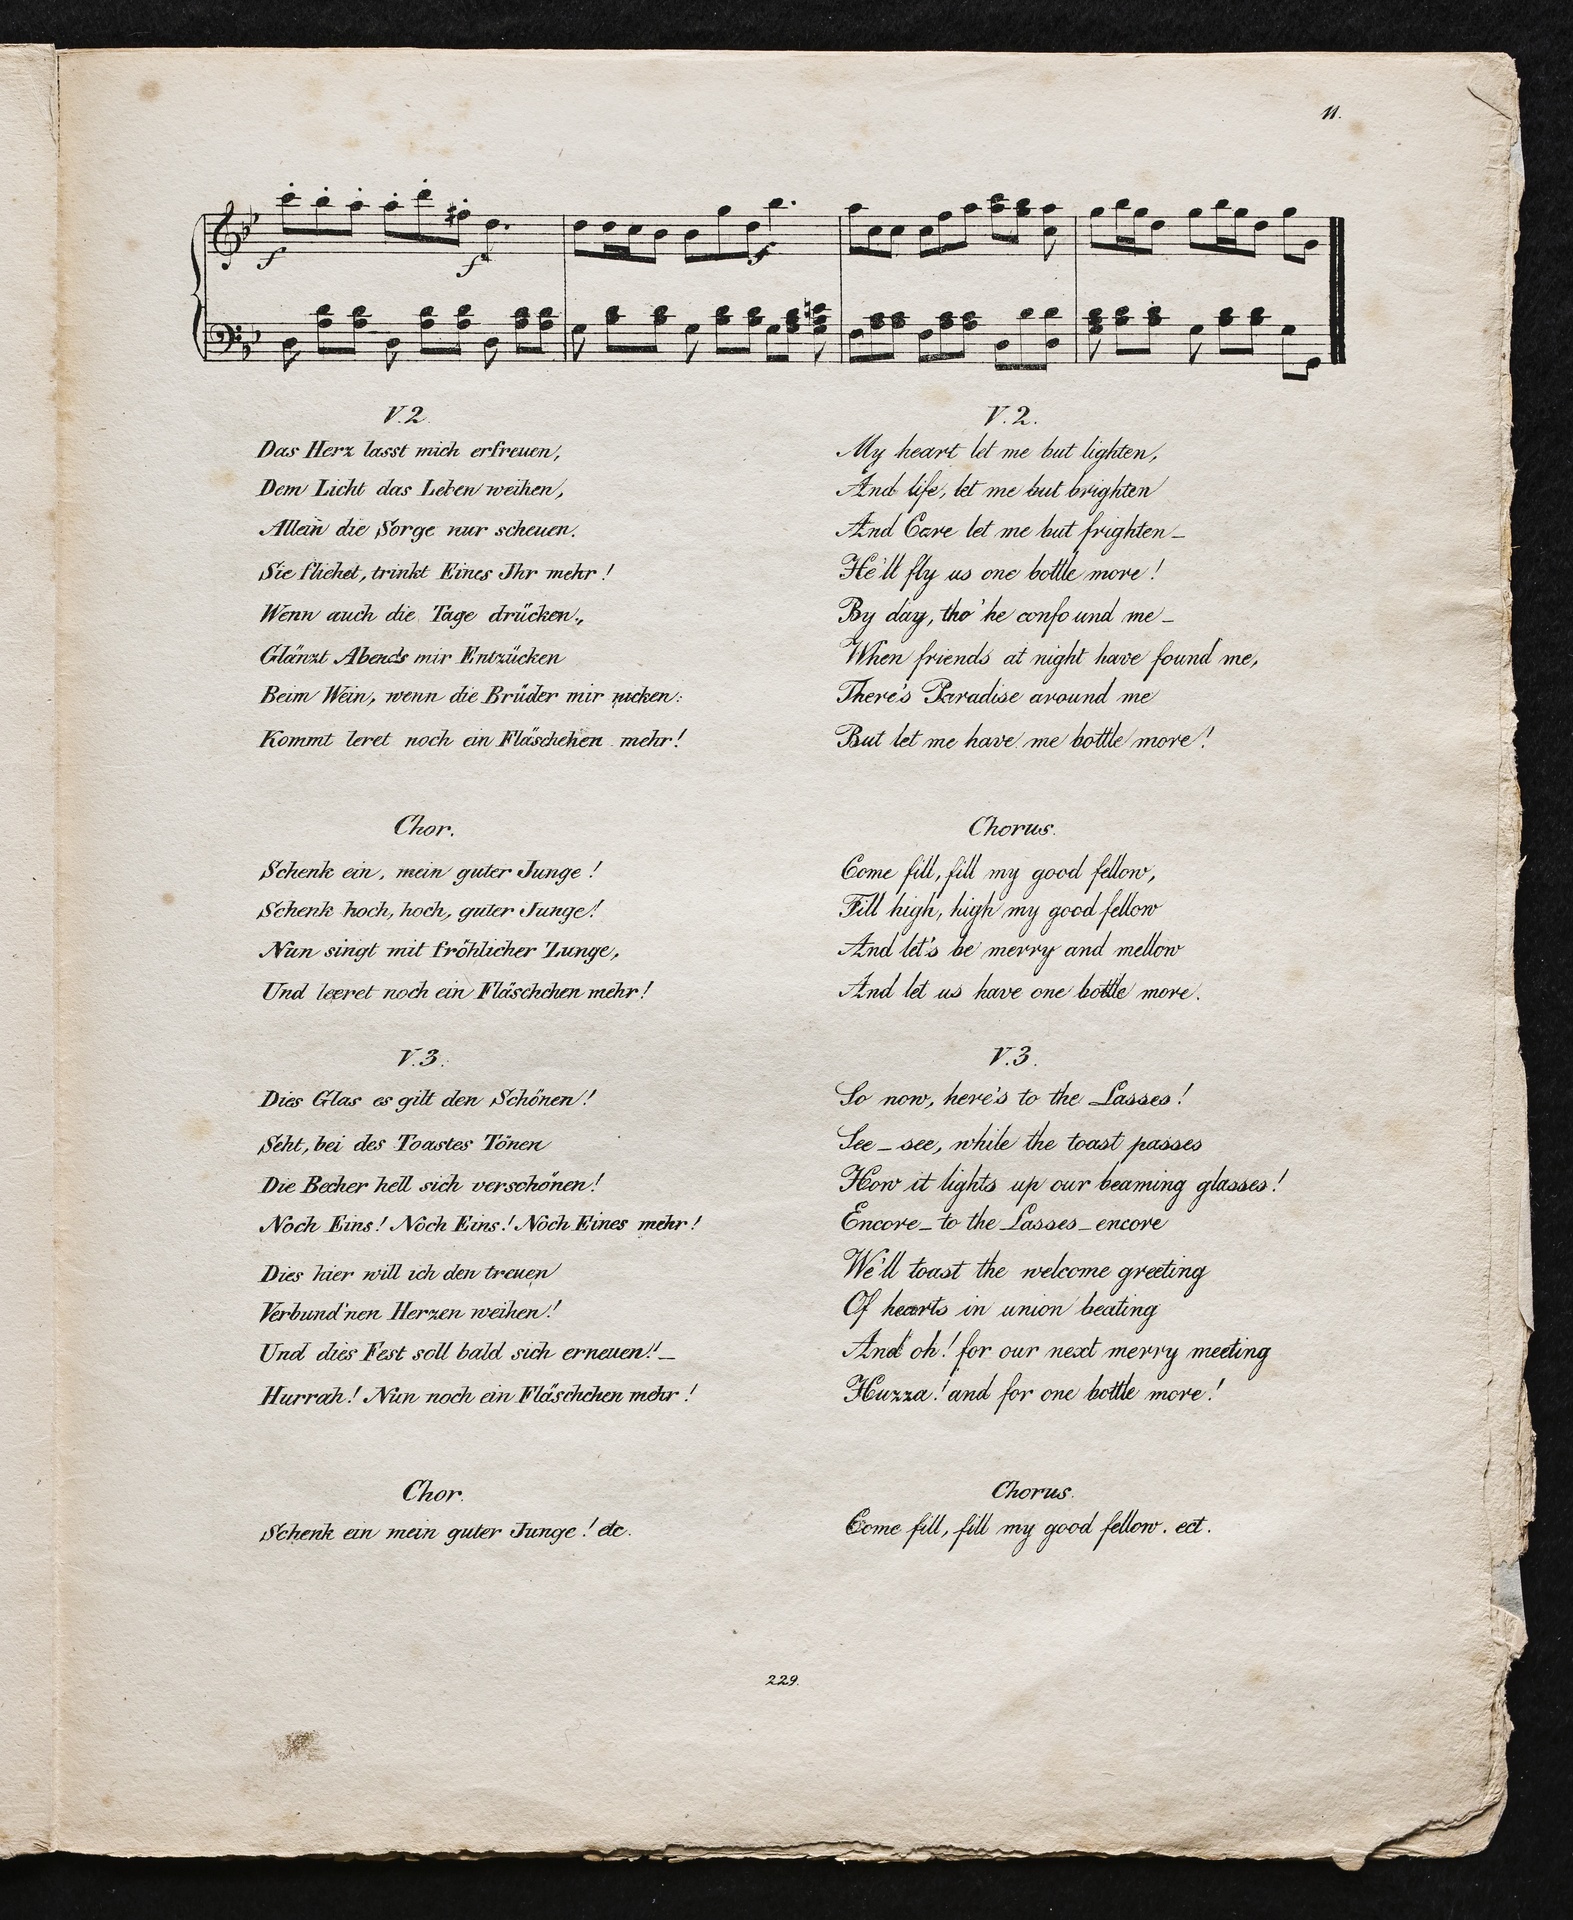 11.
f
f
f
V.2.
Das Herz lasst mich erfreuen,
Dem Licht das Leben weihen,
Allein die Sorge nur scheuen.
Sie fliehet, trinkt Eines Ihr mehr!
Wenn auch die Tage drücken,
Glänzt Abends mir Entzücken
Beim Wein, wenn die Brüder mir nicken:
Kommt leret noch ein Fläschchen mehr!
Chor.
Schenk ein, mein guter Junge!
Schenk hoch, hoch, guter Junge!
Nun singt mit fröhlicher Zunge,
Und leeret noch ein Fläschchen mehr!
V.3.
Dies Glas es gilt den Schönen!
Seht, bei des Toastes Tönen
Die Becher hell sich verschönen!
Noch Eins! Noch Eins! Noch Eines mehr!
Dies hier will ich den treuen
Verbund'nen Herzen weihen!
Und dies Fest soll bald sich erneuen! _
Hurrah! Nun noch ein Fläschchen mehr!
Chor.
Schenk ein mein guter Junge! etc.
V.2.
My heart let me but lighten,
And life, let me but brighten
And Care let me but frighten _
He'll fly us one bottle more!
By day, tho' he confound me _
When friends at night have found me,
There's Paradise around me
But let me have me bottle more!
Chorus.
Come fill, fill my good fellow,
Fill high, high my good fellow
And let's be merry and mellow
And let us have one bottle more.
V.3.
So now, here's to the Lasses!
See _ see, while the toast passes
How it lights up our beaming glasses!
Encore _ to the Lasses _ encore
We'll toast the welcome greeting
Of hearts in union beating
And oh! for our next merry meeting
Huzza! and for one bottle more!
Chorus.
Come fill, fill my good fellow. ect.
229.